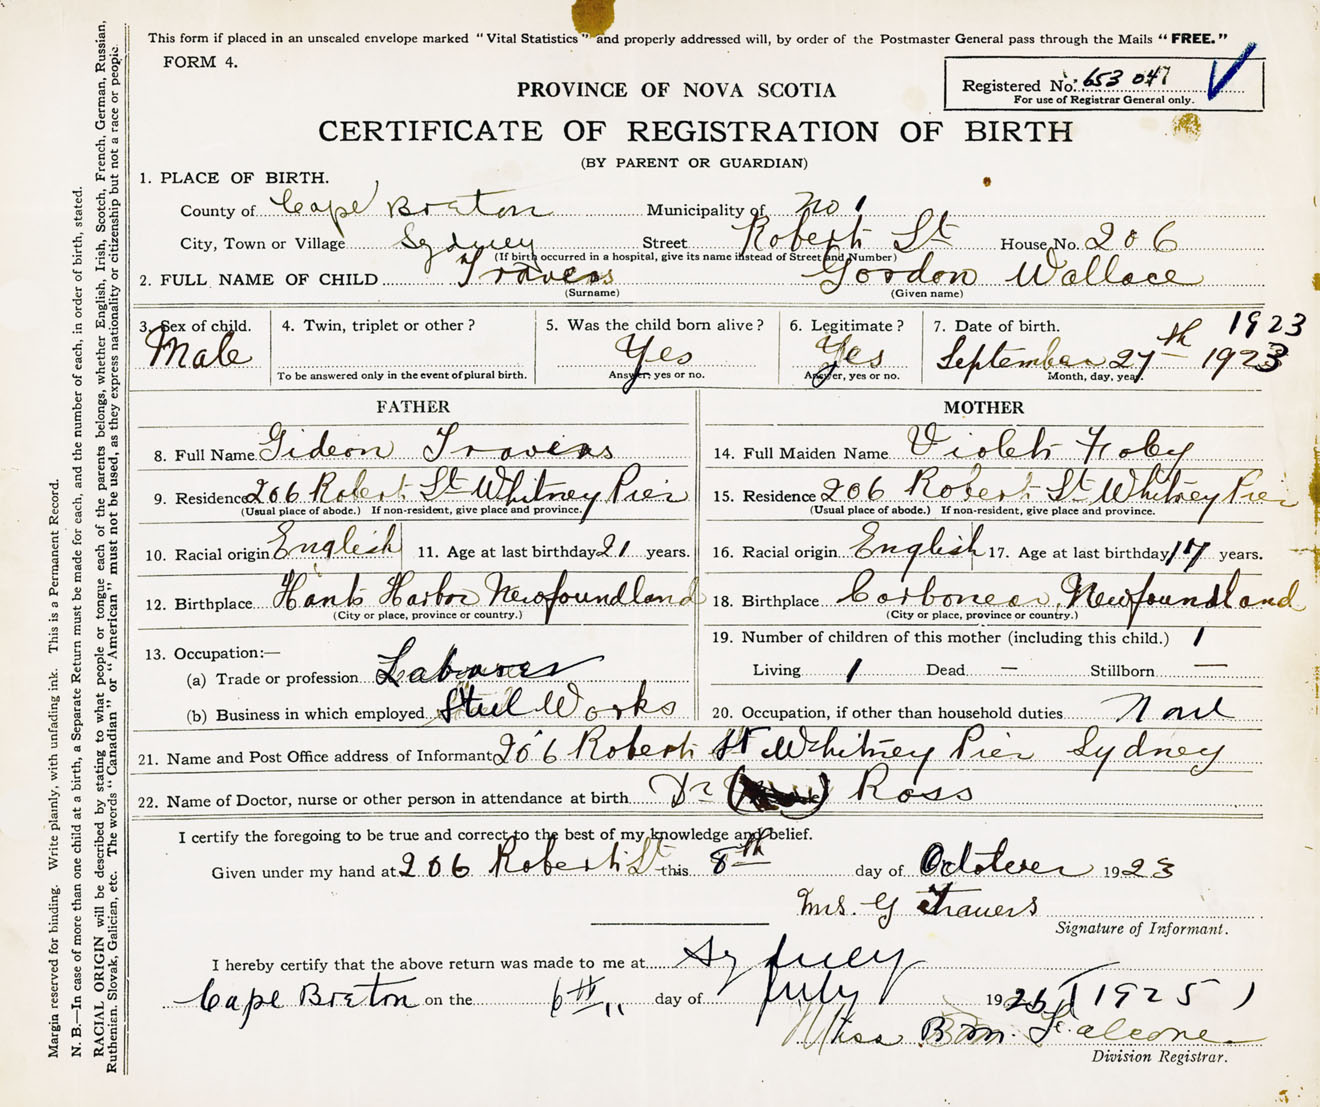 This form if placed in an unsealed envelope marked "Vital Statistics" and properly addressed will, by order of the Postmaster General pass through the Mails "FREE."
FORM 4.
Registered No. 653 047
For use of Registrar General only.
PROVINCE OF NOVA SCOTIA
CERTIFICATE OF REGISTRATION OF BIRTH
(BY PARENT OR GUARDIAN)
1. PLACE OF BIRTH.
County of Cape Breton Municipality of No 1
City, Town or Village Sydney Street Robert St House No. 206
(If birth occurred in a hospital, give its name instead of Street and Number)
2. FULL NAME OF CHILD Travers Gordon Wallace
(Surname) (Given name)
3. Sex of child. 4. Twin, triplet or other? 5. Was the child born alive? 6. Legitimate? 7. Date of birth. 1923
Male Yes Yes September 27th 1923
To be answered only in the event of plural birth. Answer, yes or no. Answer, yes or no. Month, day, year.
FATHER
8. Full Name Gideon Travers
9. Residence 206 Robert St Whitney Pier
(Usual place of abode.) If non-resident, give place and province.
10. Racial origin English 11. Age at last birthday 21 years.
12. Birthplace Hants Harbor Newfoundland
(City or place, province or country.)
13. Occupation:—
(a) Trade or profession Labourer
(b) Business in which employed Steel Works
MOTHER
14. Full Maiden Name Violet Foley
15. Residence 206 Robert St Whitney Pier
(Usual place of abode.) If non-resident, give place and province.
16. Racial origin English 17. Age at last birthday 17 years.
18. Birthplace Carbonear, Newfoundland
(City or place, province or country.)
19. Number of children of this mother (including this child.) 1
Living 1 Dead — Stillborn —
20. Occupation, if other than household duties None
21. Name and Post Office address of Informant 206 Robert St Whitney Pier Sydney
22. Name of Doctor, nurse or other person in attendance at birth Dr Ross
I certify the foregoing to be true and correct to the best of my knowledge and belief.
Given under my hand at 206 Robert St this 8th day of October 1923
Mrs. G Travers
Signature of Informant.
I hereby certify that the above return was made to me at Sydney
Cape Breton on the 6th day of July 1925 (1925)
Miss B. M. Falcone
Division Registrar.
Margin reserved for binding. Write plainly, with unfading ink. This is a Permanent Record.
N. B.—In case of more than one child at a birth, a Separate Return must be made for each, and the number of each, in order of birth, stated.
RACIAL ORIGIN will be described by stating to what people or tongue each of the parents belongs, whether English, Irish, Scotch, French, German, Russian,
Ruthenian, Slovak, Galician, etc. The words "Canadian" or "American" must not be used, as they express nationality or citizenship but not a race or people.